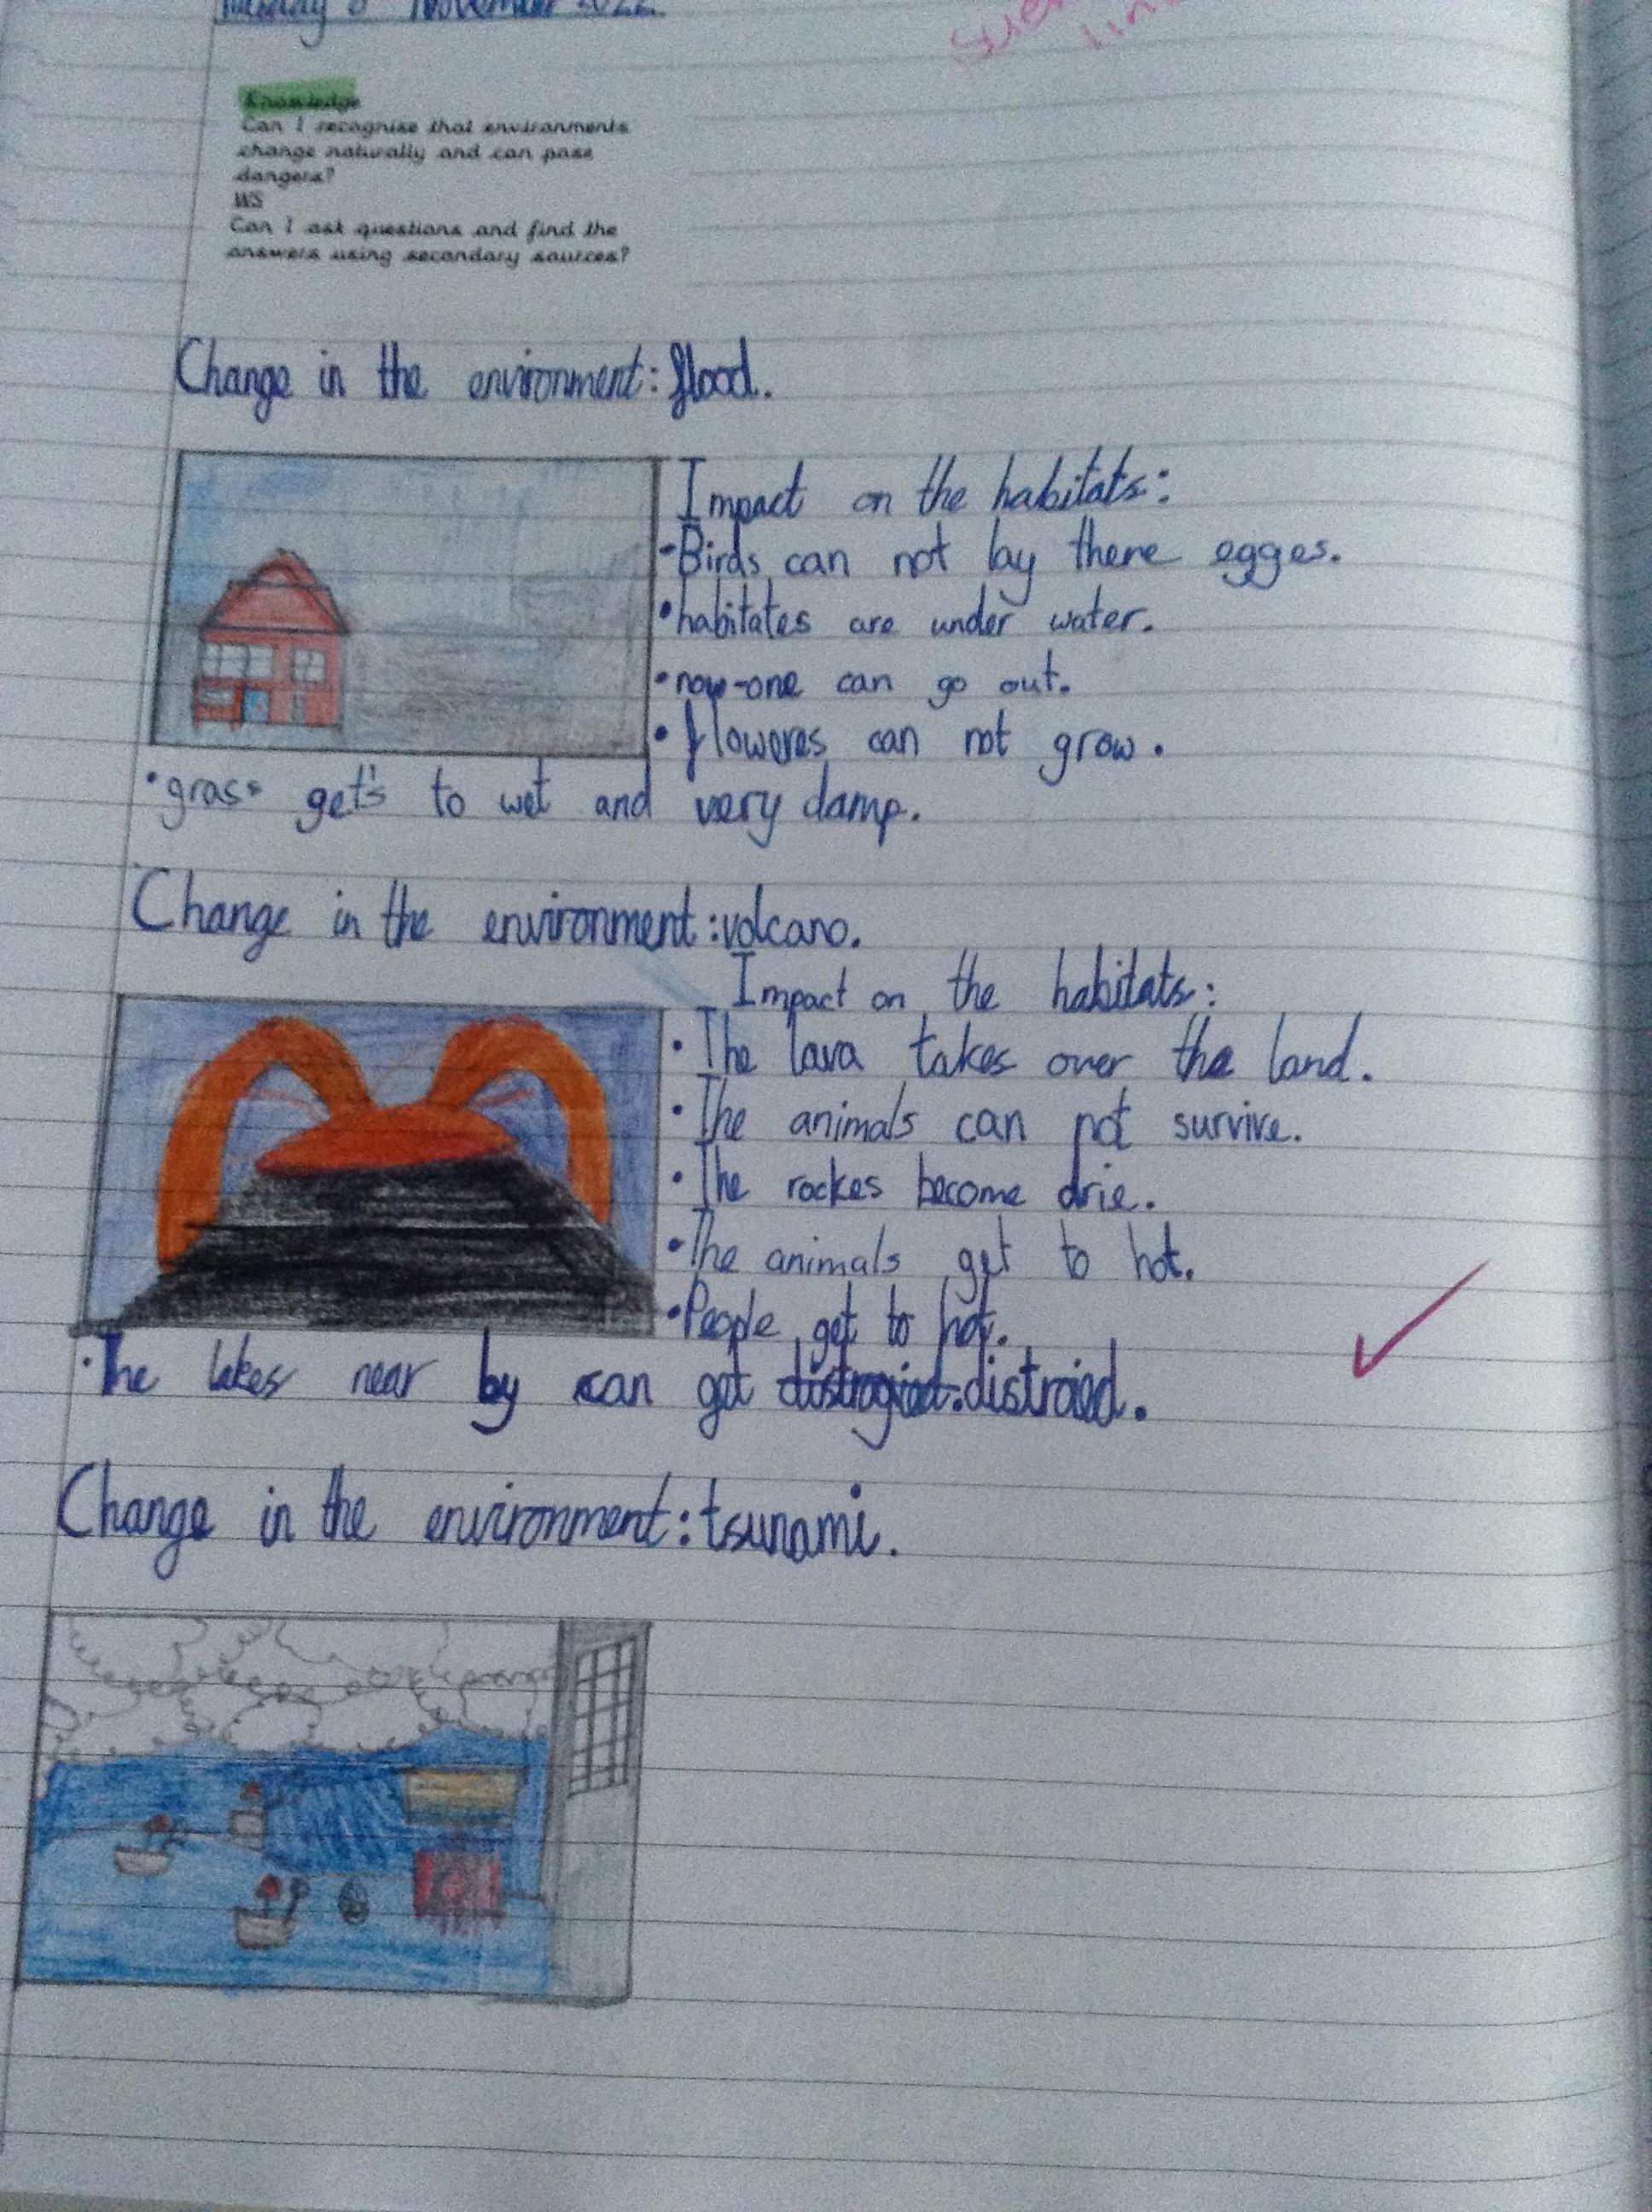 November 2022.
Knowledge
Can I recognise that environments
change naturally and can pose
dangers?
WS
Can I ask questions and find the
answers using secondary sources?
Change in the environment: flood.
Impact on the habitats:
•Birds can not lay there egges.
•habitates are under water.
•now-one can go out.
•floweres can not grow.
•grass get's to wet and very damp.
Change in the environment:volcano.
Impact on the habitats:
•The lava takes over the land.
•The animals can not survive.
•The rockes become drie.
•The animals get to hot.
•People get to hot.
•The lakes near by can get distroied.
Change in the environment:tsunami.